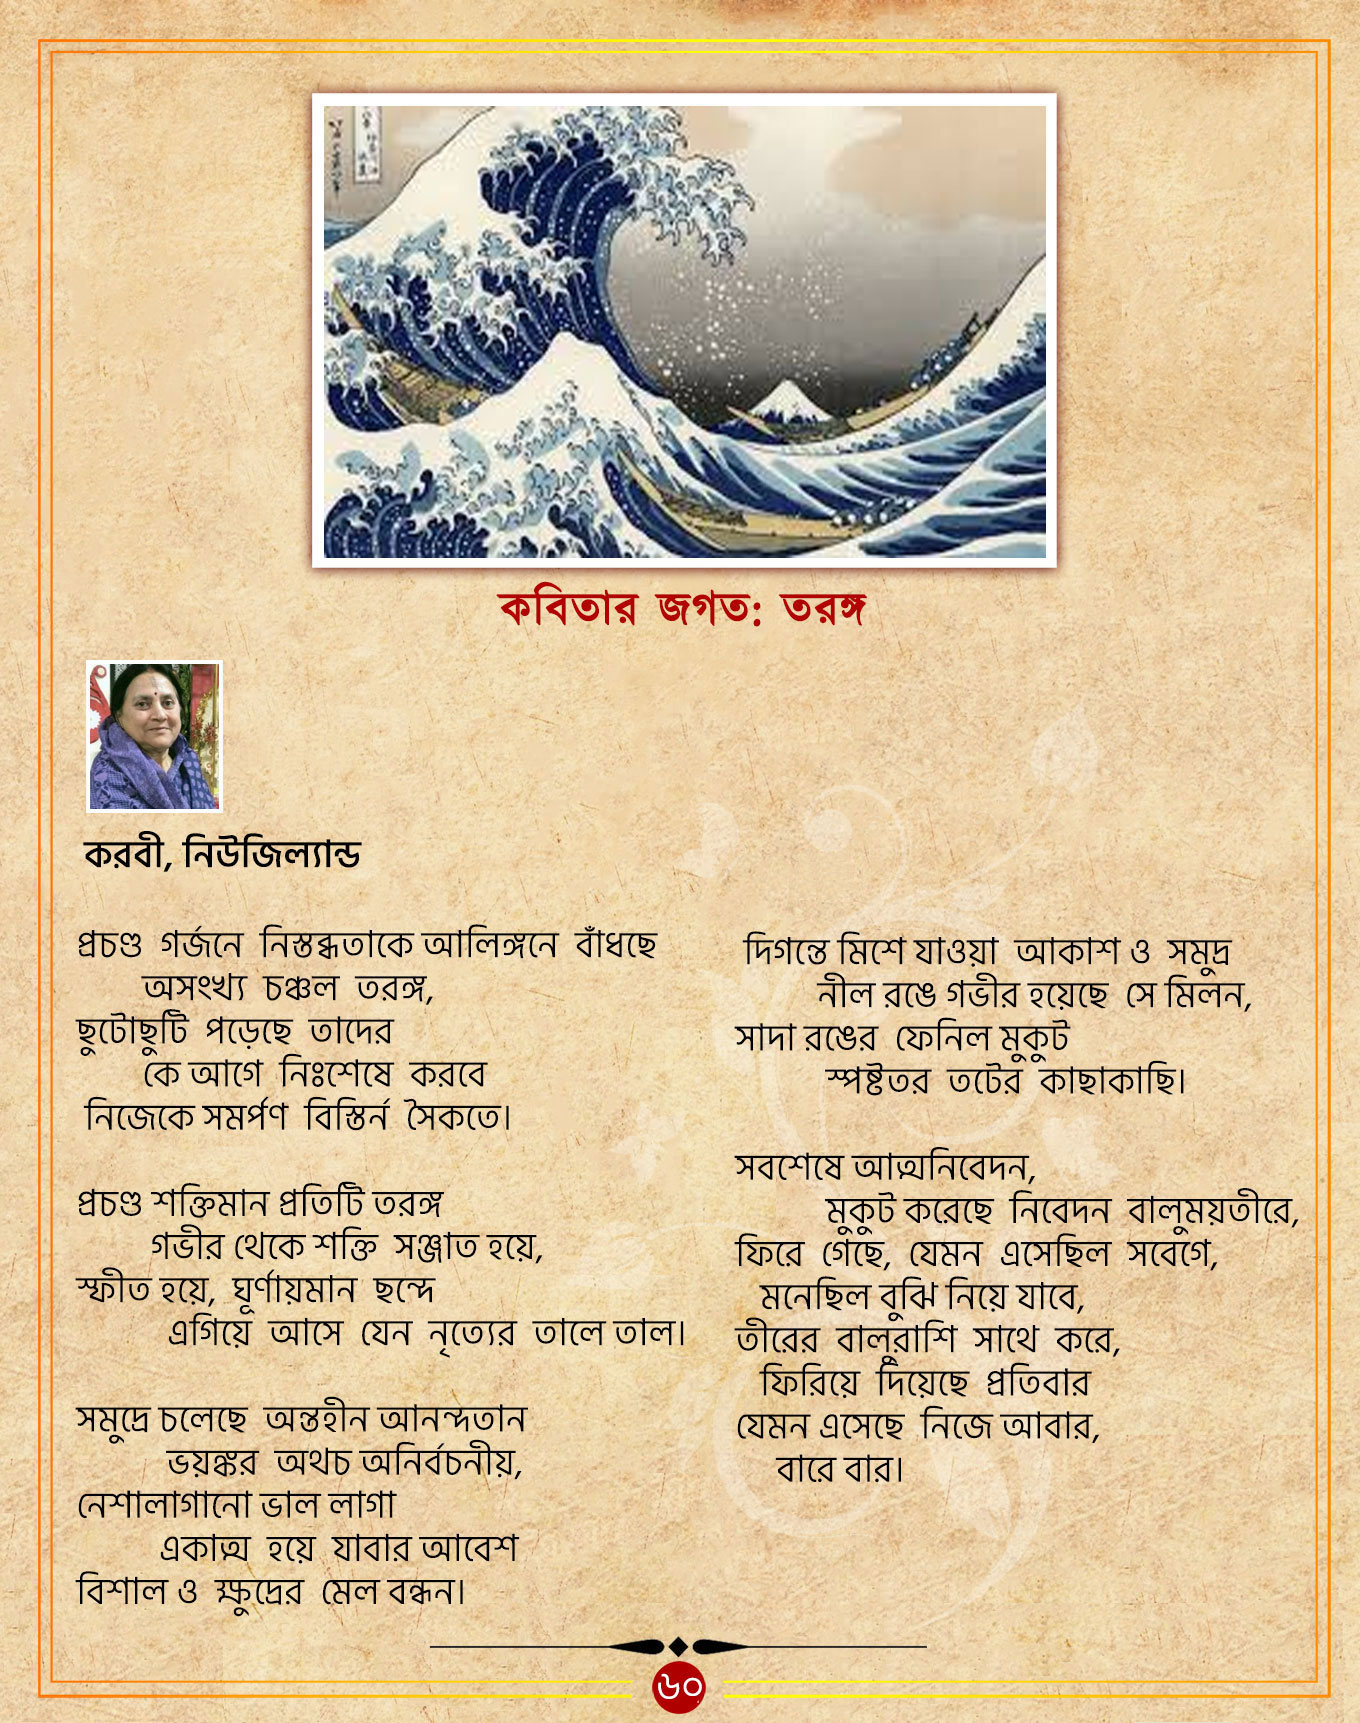 কবিতার জগত: তরঙ্গ
করবী, নিউজিল্যান্ড
প্রচণ্ড গর্জনে নিস্তব্ধতাকে আলিঙ্গনে বাঁধছে
অসংখ্য চঞ্চল তরঙ্গ,
ছুটোছুটি পড়েছে তাদের
কে আগে নিঃশেষে করবে
নিজেকে সমর্পণ বিস্তির্ন সৈকতে।
প্রচণ্ড শক্তিমান প্রতিটি তরঙ্গ
গভীর থেকে শক্তি সঞ্জাত হয়ে,
স্ফীত হয়ে, ঘূর্ণায়মান ছন্দে
এগিয়ে আসে যেন নৃত্যের তালে তাল।
সমুদ্রে চলেছে অন্তহীন আনন্দতান
ভয়ঙ্কর অথচ অনির্বচনীয়,
নেশালাগানো ভাল লাগা
একাত্ম হয়ে যাবার আবেশ
বিশাল ও ক্ষুদ্রের মেল বন্ধন।
দিগন্তে মিশে যাওয়া আকাশ ও সমুদ্র
নীল রঙে গভীর হয়েছে সে মিলন,
সাদা রঙের ফেনিল মুকুট
স্পষ্টতর তটের কাছাকাছি।
সবশেষে আত্মনিবেদন,
মুকুট করেছে নিবেদন বালুময়তীরে,
ফিরে গেছে, যেমন এসেছিল সবেগে,
মনেছিল বুঝি নিয়ে যাবে,
তীরের বালুরাশি সাথে করে,
ফিরিয়ে দিয়েছে প্রতিবার
যেমন এসেছে নিজে আবার,
বারে বার।
৬০